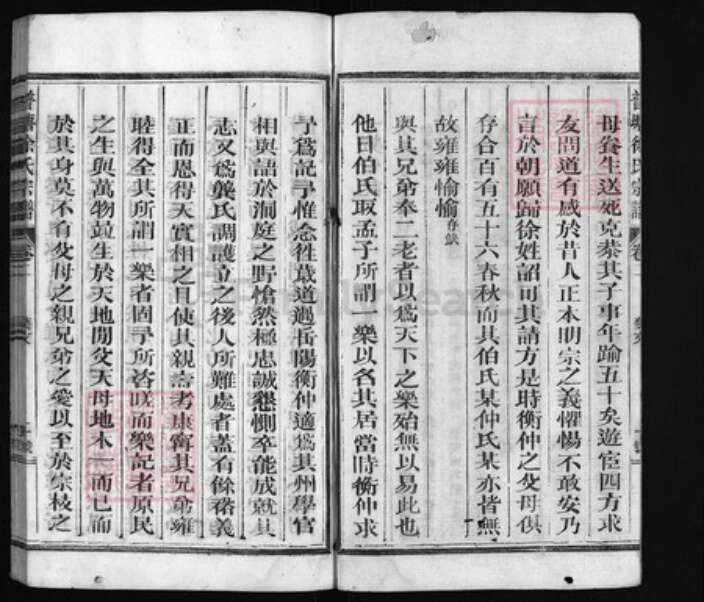 母養生送死克恭其子事年踰五十矣遊宦四方求
友問道有感於昔人正本明宗之義懼惕不敢安乃
言於朝願歸徐姓詔可其請方是時衡仲之父母俱
存合百有五十六春秋而其伯氏某仲氏某亦皆無
故雍雍愉愉存缺
與其兄弟奉二老者以為天下之樂殆無以易此也
他日伯氏取孟子所謂一樂以名其居當時衡仲求
予為記予惟念往歲道過岳陽衡仲適為其州學官
相與語於洞庭之野愴然極忠誠懇惻卒能成就其
志又為龔氏調護立之後人所難處者蓋有餘裕義
正而恩得天實相之且使其親壽考康寧其兄弟雍
睦得全其所謂一樂者固予所咨嗟而樂記者原民
之生與萬物並生於天地間父天母地本一而已而
於其身莫不有父母之親兄弟之愛以至於宗枝之
普塘徐氏宗譜 卷二